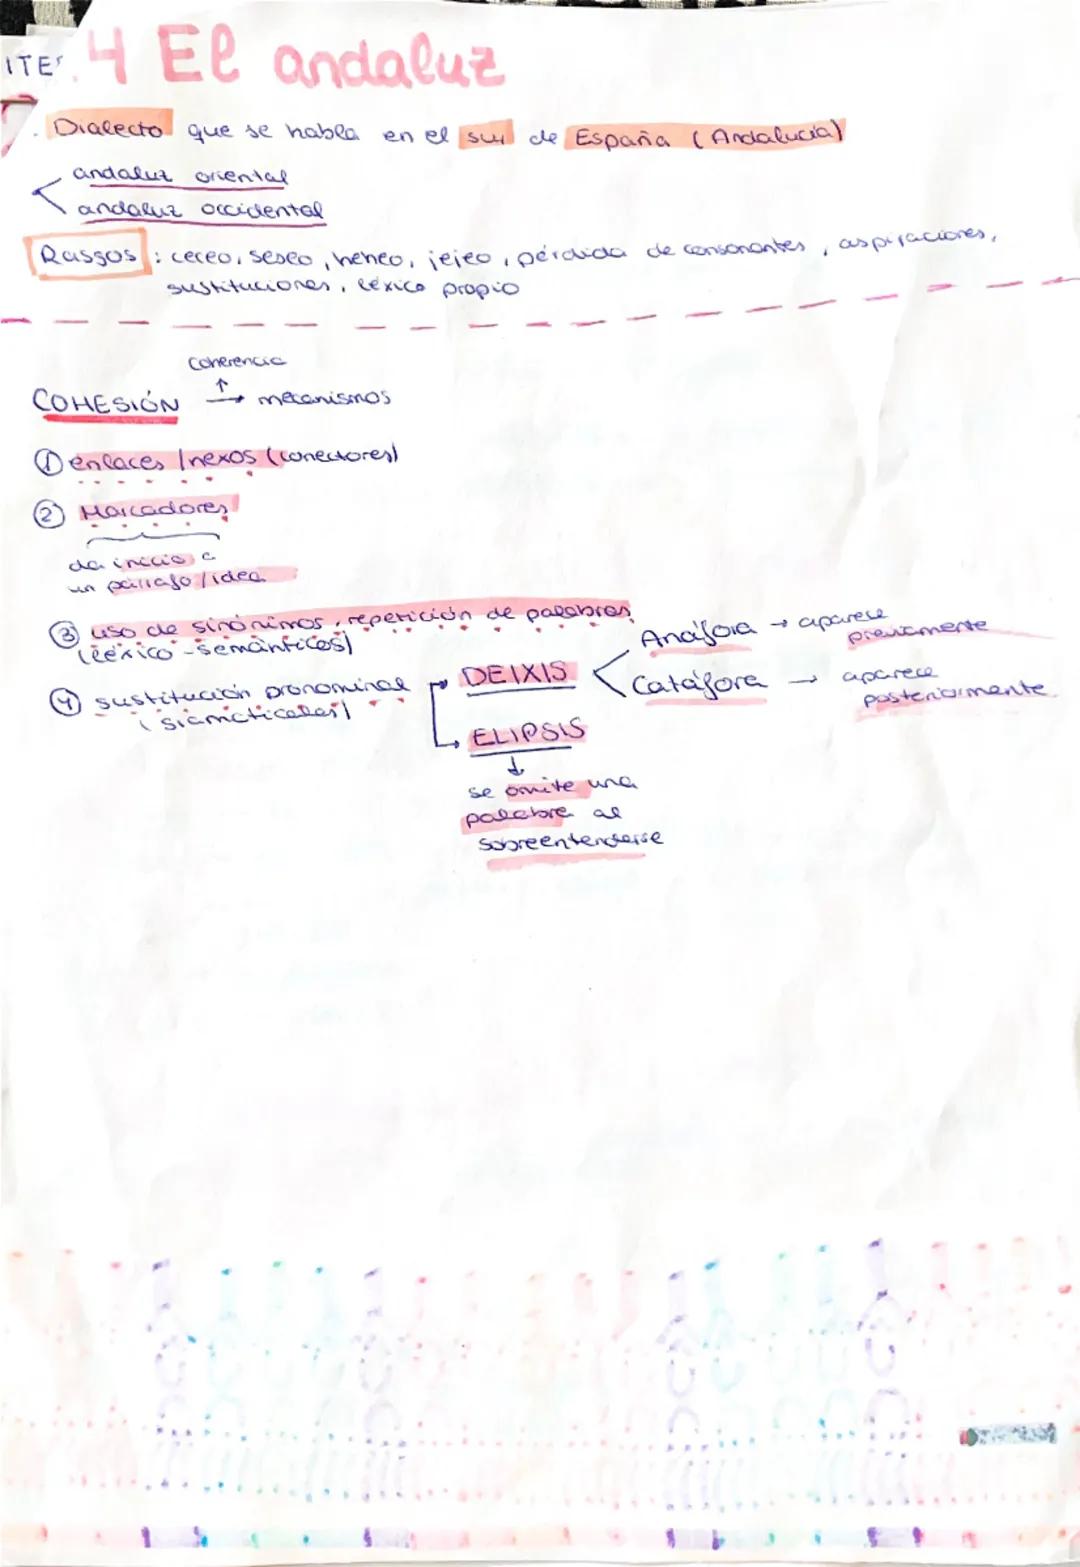 4 El andaluz
Dialecto que se habla en el sur de España (Andalucía)
andaluz oriental
andaluz occidental
Rasgos: ceceo, seseo, heheo, jejeo, pérdida de consonantes, aspiraciones,
sustituciones, léxico propio
coherencia
↑
COHESIÓN → mecanismos
① enlaces / nexos (conectores)
② Marcadores
da inicio a
un párrafo / idea
③ uso de sinónimos, repetición de palabras
(léxico-semánticos)
④ sustitución pronominal
(gramaticales)
DEIXIS
Anáfora → aparece
previamente
Catáfora → aparece
posteriormente
ELIPSIS
↓
se omite una
palabra al
sobreentenderse